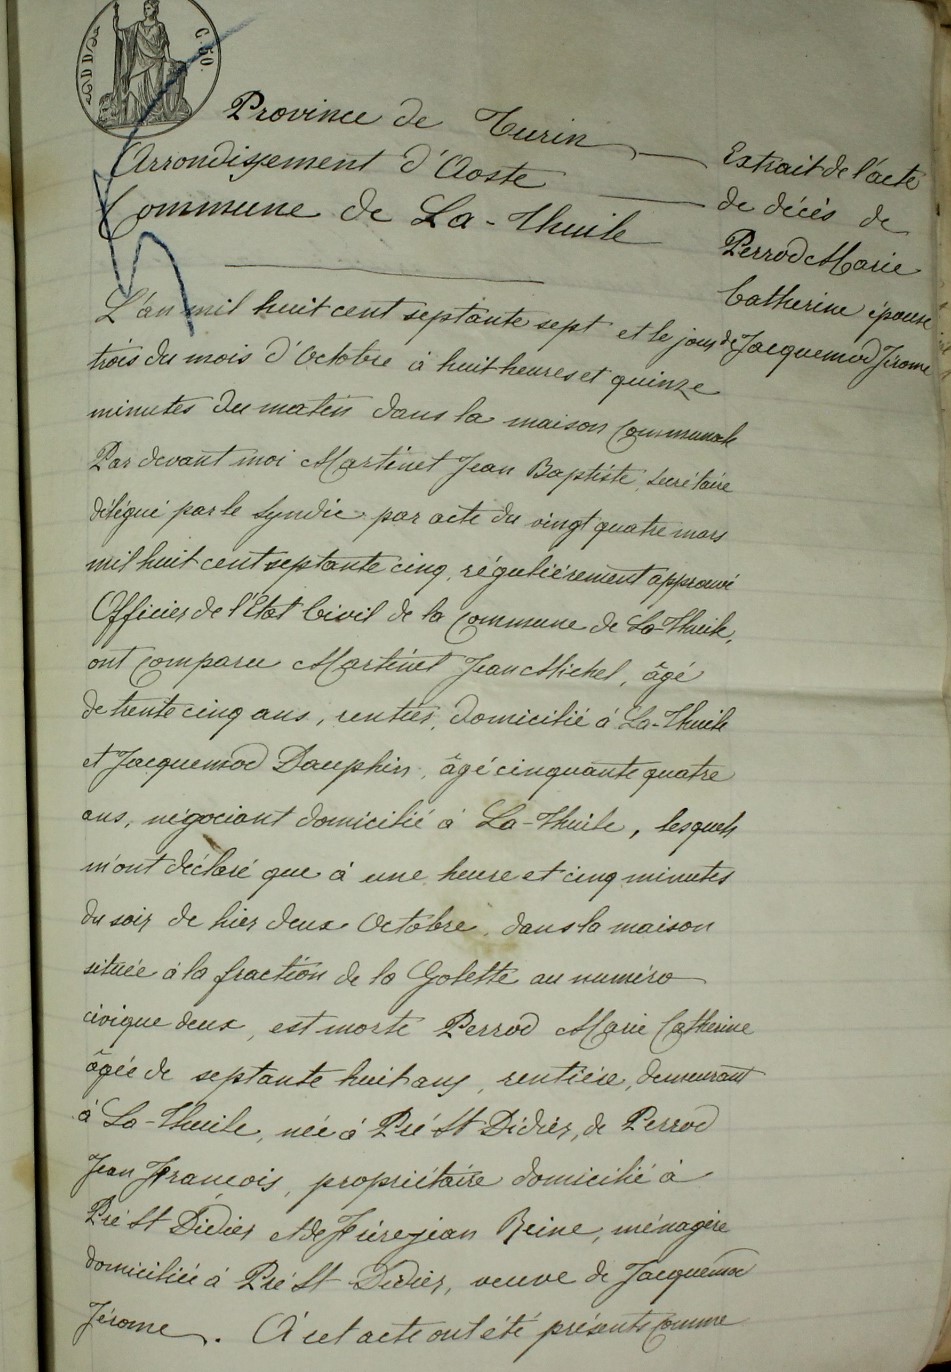 C. 50.
Province de Turin
Arrondissement d'Aoste
Commune de La-Thuile
Extrait de l'acte
de décès de
Perrod Marie
Catherine épouse
de Jacquemod Jérome
L'an mil huit cent septante sept et le jour
trois du mois d'Octobre à huit heures et quinze
minutes du matin dans la maison Communale
Par devant moi Martinet Jean Baptiste, Secrétaire
délégué par le Syndic par acte du vingt quatre mars
mil huit cent septante cinq, régulièrement approuvé
Officier de l'État Civil de la Commune de La-Thuile,
ont comparu Martinet Jean Michel, âgé
de trente cinq ans, rentier, domicilié à La-Thuile
et Jacquemod Dauphin, âgé cinquante quatre
ans, négociant domicilié à La-Thuile, lesquels
m'ont déclaré que à une heure et cinq minutes
du soir de hier deux Octobre, dans la maison
située à la fraction de la Golette au numéro
civique deux, est morte Perrod Marie Catherine
âgée de septante huit ans, rentière, demeurant
à La-Thuile, née à Pré St Didier, de Perrod
Jean François, propriétaire domicilié à
Pré St Didier et de Reine, ménagère
domiciliée à Pré St Didier, veuve de Jacquemod
Jérome. À cet acte ont été présents comme